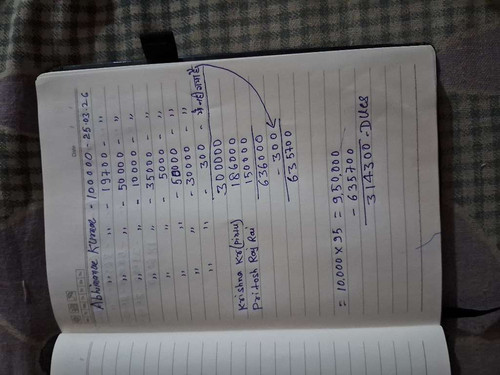 Date
Abhinav Kumar - 100000 - 25.03.26
" " - 19700 - "
" " - 50000 - "
" " - 10000 - "
" " - 35000 - "
" " - 5000 - "
" " - 50000 - "
" " - 30000 - "
" " - 300 -
300000
Krishna Kr (Pinzu) 186000
Pritosh Raj Rai 150000
636000
- 300
635700
= 10,000 x 95 = 9,50,000
- 635700
314300 - Dues